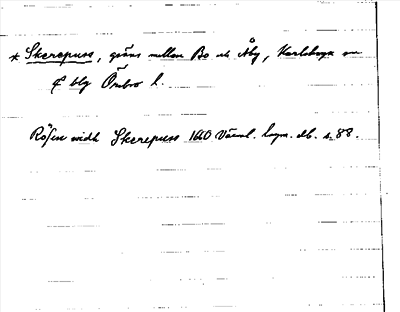 * Skerepuss, gräns mellan Bo och Åby, Karlskoga sn
& blg Örebro l.
Rösen widh Skerepuss 1660 Värml. lagm. db. s. 88.